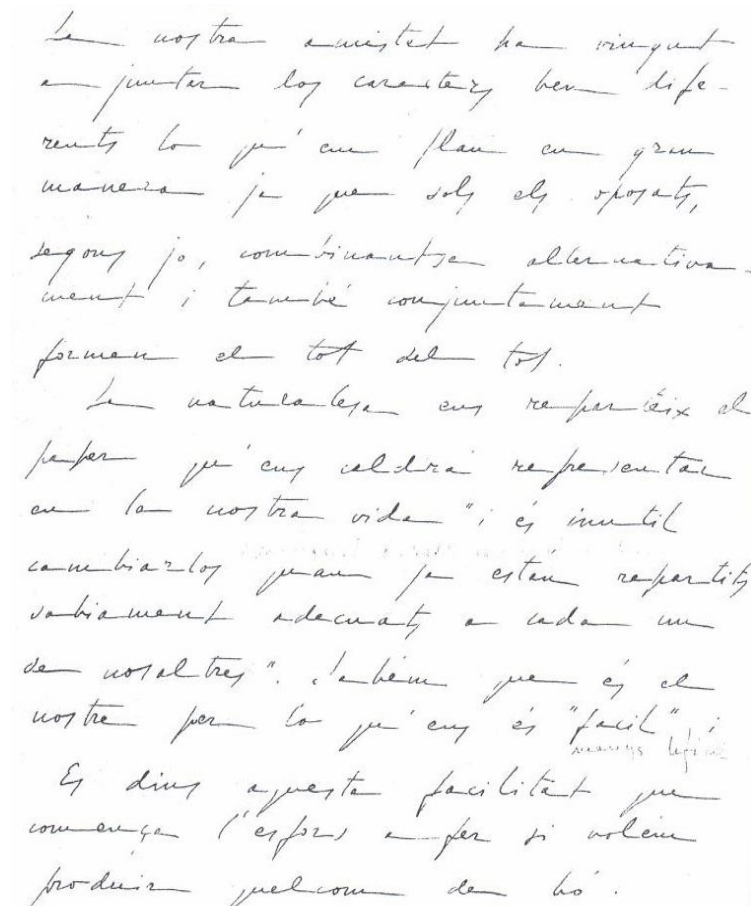 La nostra amistat ha vingut
a juntar dos caracters ben dife-
rents lo qu'em plau en gran
manera ja que sols els oposats,
segons jo, combinantse alternativa-
ment i també conjuntament
formen el tot del tot.
La naturalesa ens reparteix el
paper qu'ens caldrá representar
en la nostra vida "i és inutil
cambiar-los quan ja estan repartits
sabiament adecuats a cada un
de nosaltres". Sabem que és el
nostre per lo qu'ens és "facil" i
menys
Es dins aquesta facilitat que
comença l'esfors a fer si volem
produir quelcom de bó.